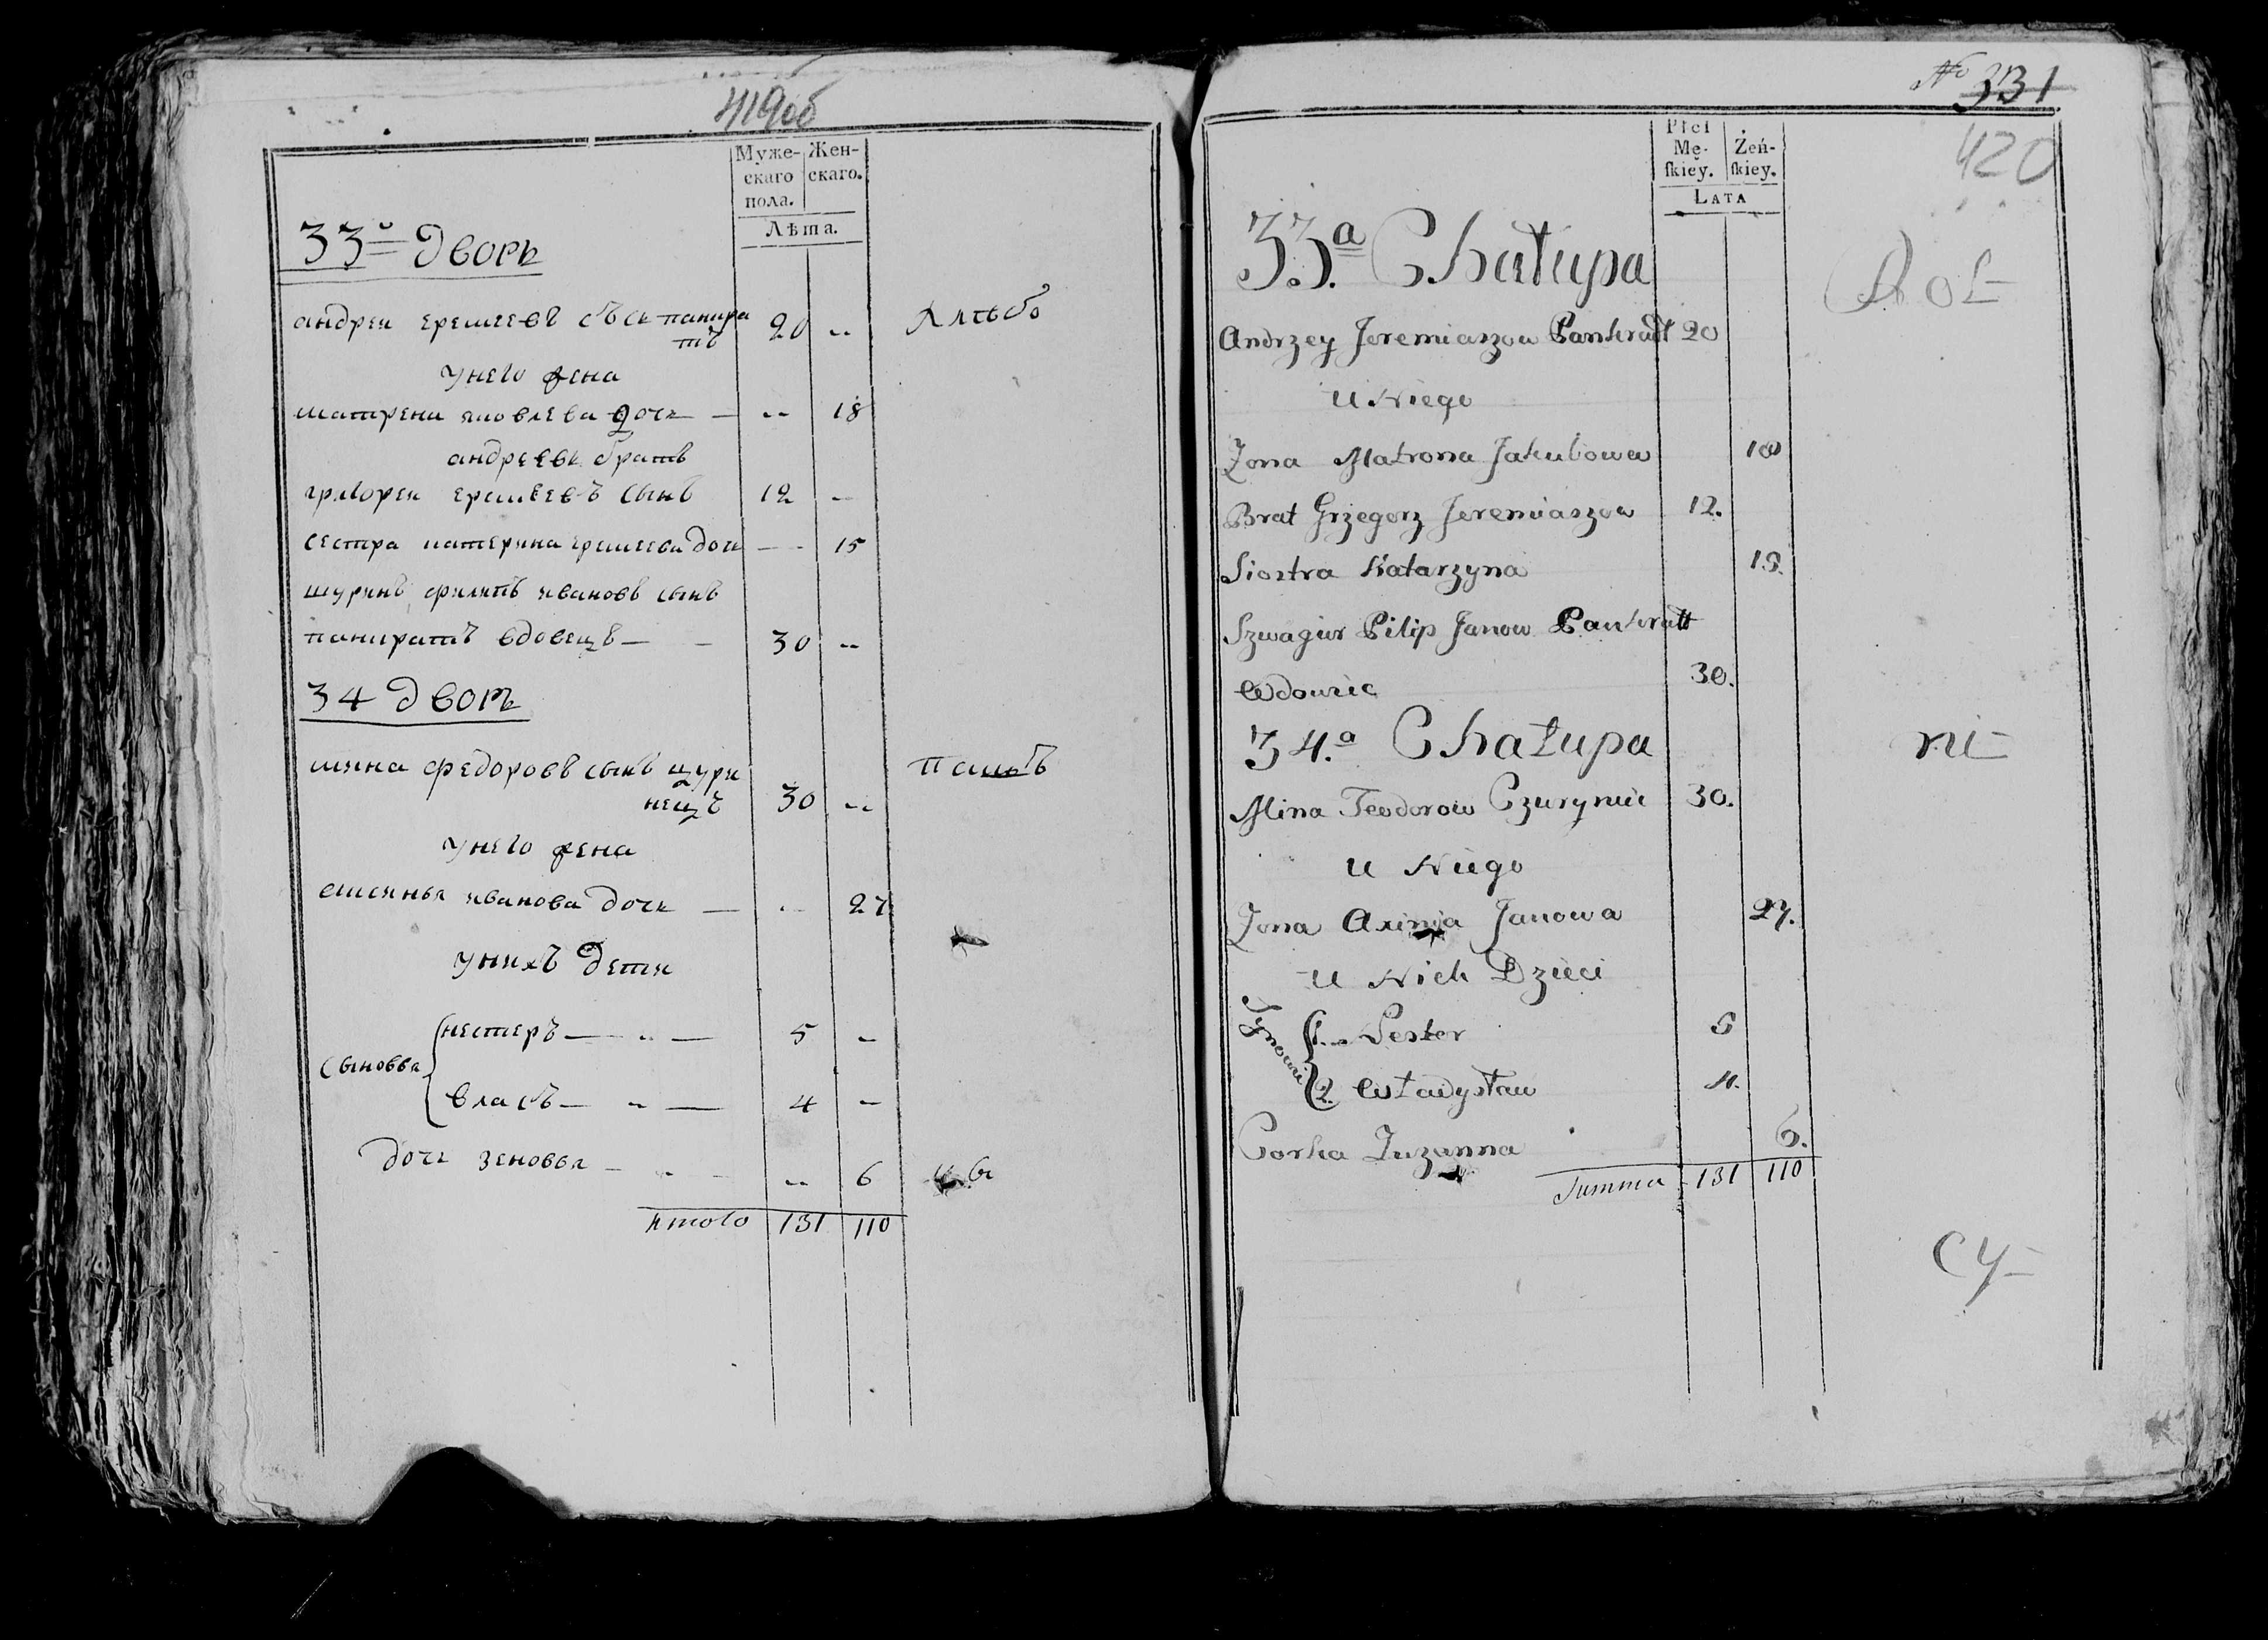 419об
Муже-
скаго
пола.
Жен-
скаго.
Лѣта.
33й Дворъ
андреи еремеевъ сынъ панкра
тъ 20 --
унего жена
матрена яковлева дочь — -- 18
андреевъ братъ
григореи еремеевъ сынъ 12 --
сестра катерина еремеева дочь -- 15
шуринъ филипъ ивановъ сынъ
панкратъ вдовецъ — 30 --
34 Дворъ
мина федоровъ сынъ цури
нецъ 30 --
унего жена
аксинья иванова дочь — -- 27
унихъ дети
сыновья
нестеръ — -- — 5 --
власъ — -- — 4 --
дочь зеновья — -- 6
итого 131 110
№ 331
420
Płci
Mę-
skiey.
Żeń-
skiey.
LATA
33.a Chałupa
Andrzey Jeremiaszow Pankratt 20
U Niego
Zona Matrona Jakubowa 18
Brat Grzegorz Jeremiaszow 12.
Siostra Katarzyna 15.
Szwagier Pilip Janow Pankratt
Wdowiec 30.
34.a Chałupa
Mina Teodorow Czuryniec 30.
U Niego
Zona Axinia Janowa 27.
U Nich Dzieci
Synowie
1. Nester 5
2. Władysław 4.
Corka Zuzanna 6.
Summa 131 110